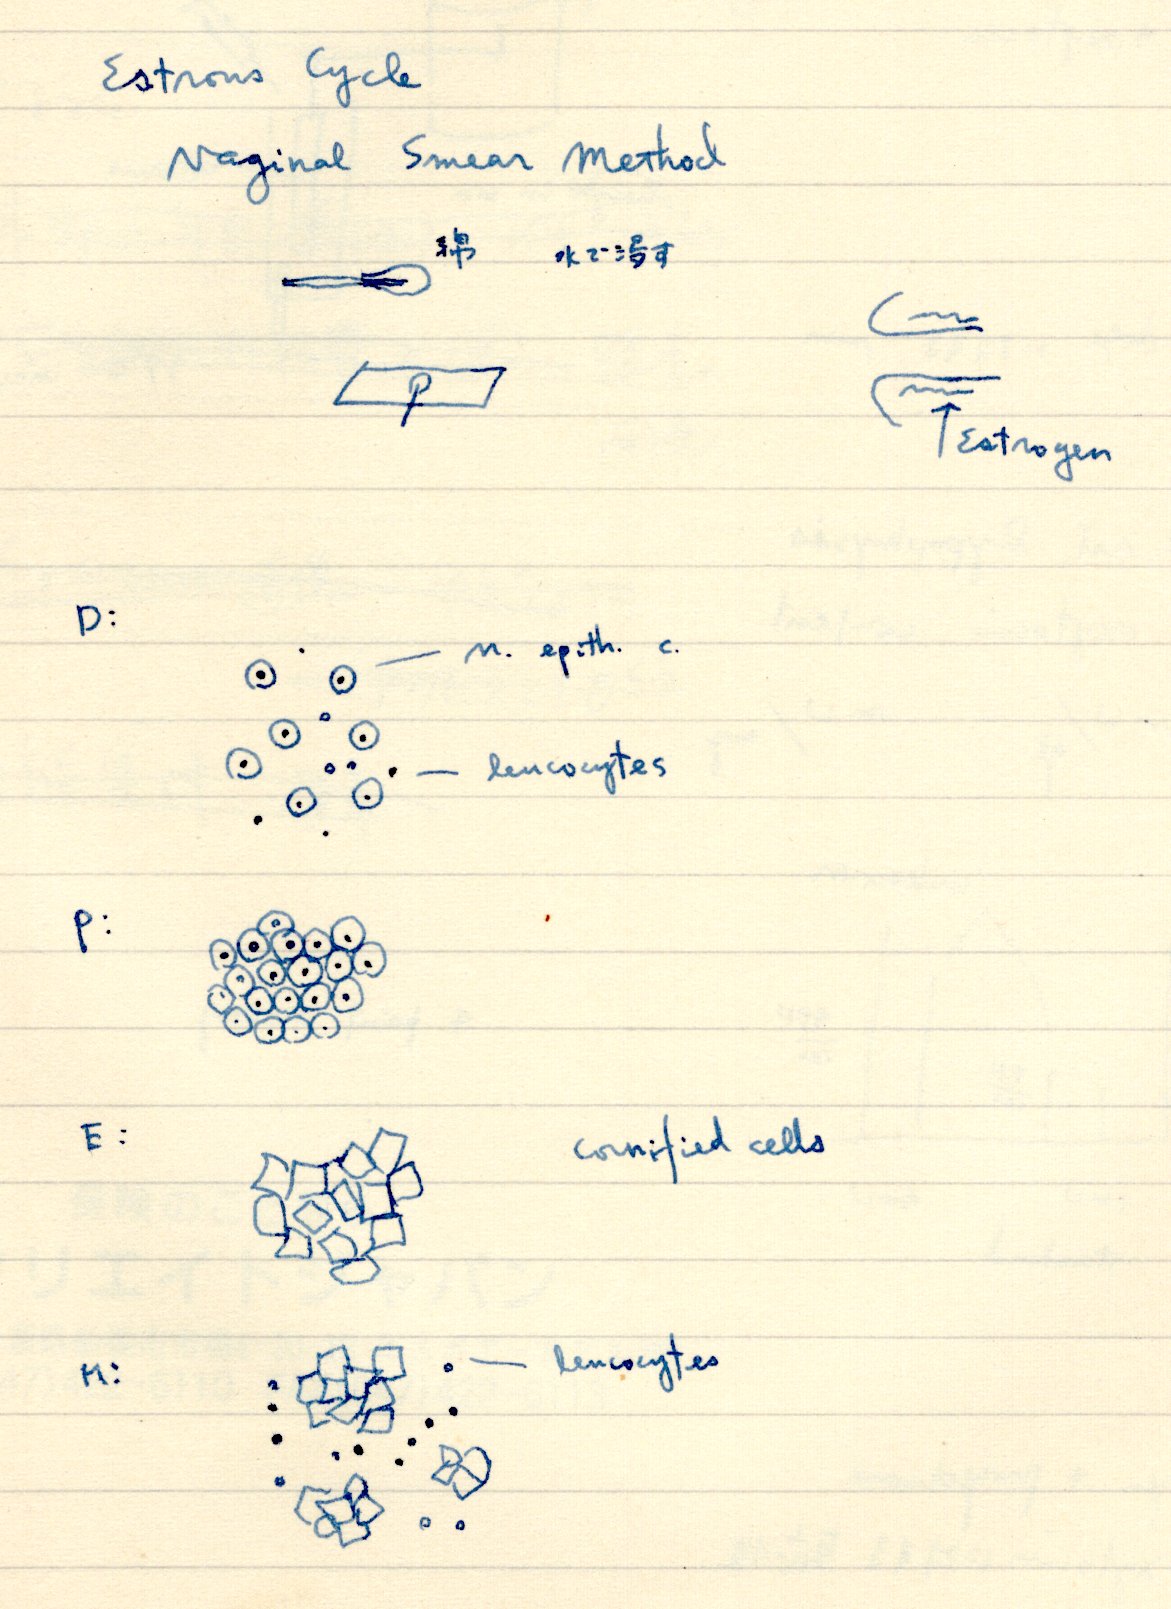 Estrous Cycle
Vaginal Smear Method
綿 水で湿す
Estrogen
D:
n. epith. c.
leucocytes
P:
E:
cornified cells
M:
leucocytes